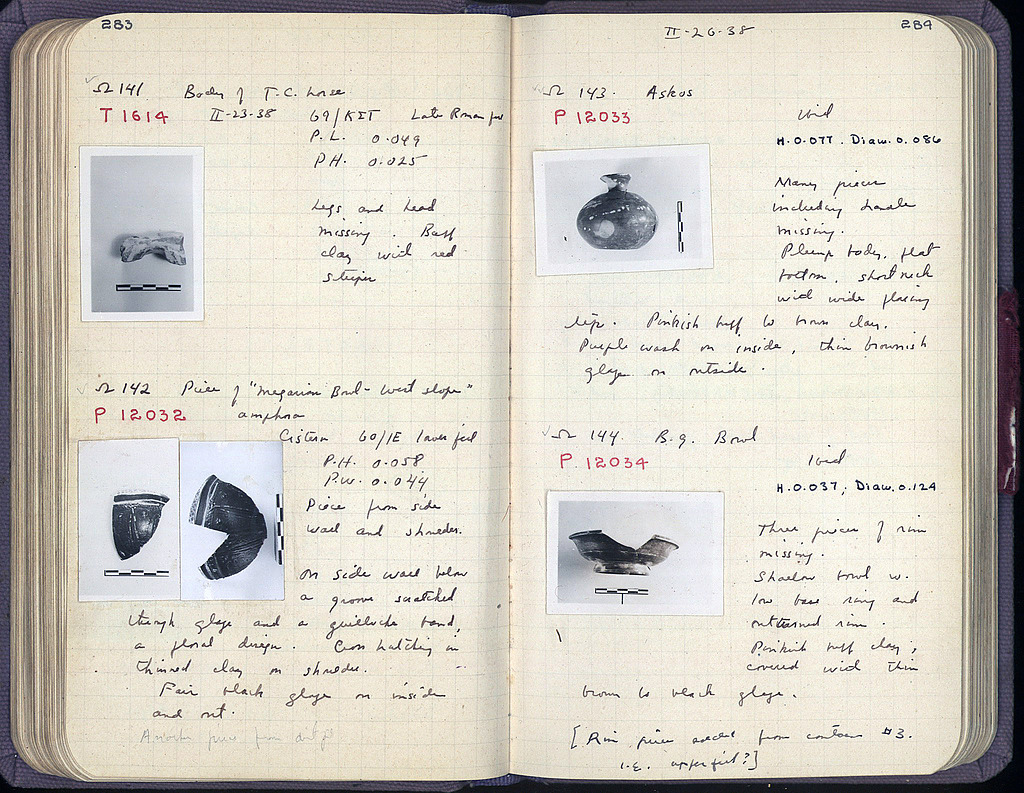 283
Ω 141 Body of T.C. horse
T 1614 II-23-38 69/KET Late Roman fill
P.L. 0.049
PH. 0.025
Legs and head
missing. Buff
clay with red
stripes
Ω 142 Piece of "Megarian Bowl - West slope"
P 12032 amphora
Cistern 60/IE lower fill
P.H. 0.058
P.W. 0.044
Piece from side
wall and shoulder.
On side wall below
a groove scratched
through glaze and a guilloche band,
a floral design. Cross hatching in
thinned clay on shoulder.
Fair black glaze on inside
and out.
Another piece from
284
II-26-38
Ω 143. Askos
P 12033 Ibid
H.0.077. Diam.0.086
Many pieces
including handle
missing.
Plump body, flat
bottom, short neck
with wide flaring
lip. Pinkish buff to brown clay.
Purple wash on inside, thin brownish
glaze on outside.
Ω 144. B.g. Bowl
P 12034 Ibid
H.0.037; Diam.0.124
Three pieces of rim
missing.
Shallow bowl w.
low base ring and
outturned rim.
Pinkish buff clay,
covered with thin
brown to black glaze.
[Rim piece added from container #3.
i.e. upper fill?]